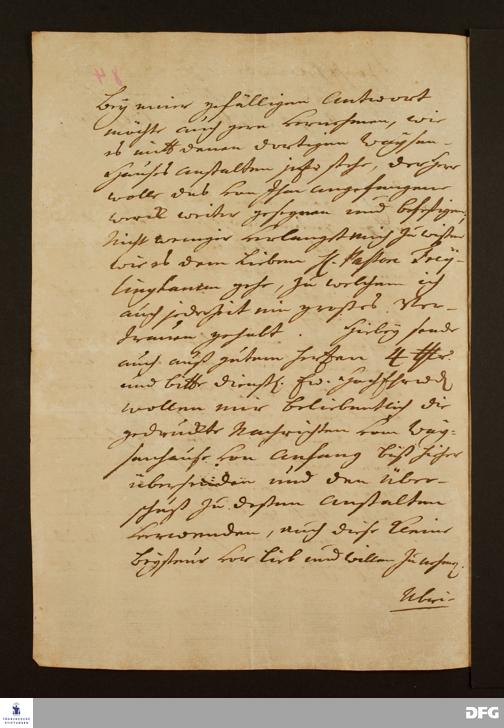 84
Bey meiner gefälligen Antwort
möchte auch gern vernehmen, wie
es mitt denen dortigen Waÿsen-
hauses anstalten jetzo stehe, der Herr
wolle das von Ihm angefangene
werck weiter gesegnen und befestigen.
Nicht weniger verlanget mich zu wissen
wie es dem lieben H. Pastor Freÿ-
linghausen gehe, zu welchem ich
auch jederzeit ein großes Ver-
trauen gehabt. Hiebeÿ sende
auch auß gutem hertzen 4 thr.
und bitte dienstl. Ew. HochEhrwd
wollen mir beliebentlich die
gedruckte Nachrichten vom Waÿ-
senhause von Anfang biß hieher
übersenden und den über-
schuß zu dessen Anstalten
verwenden, auch diese kleine
Beÿsteur vor lieb und willen zu nehmen.
Ubri-
FRANCKESCHE
STIFTUNGEN
DFG